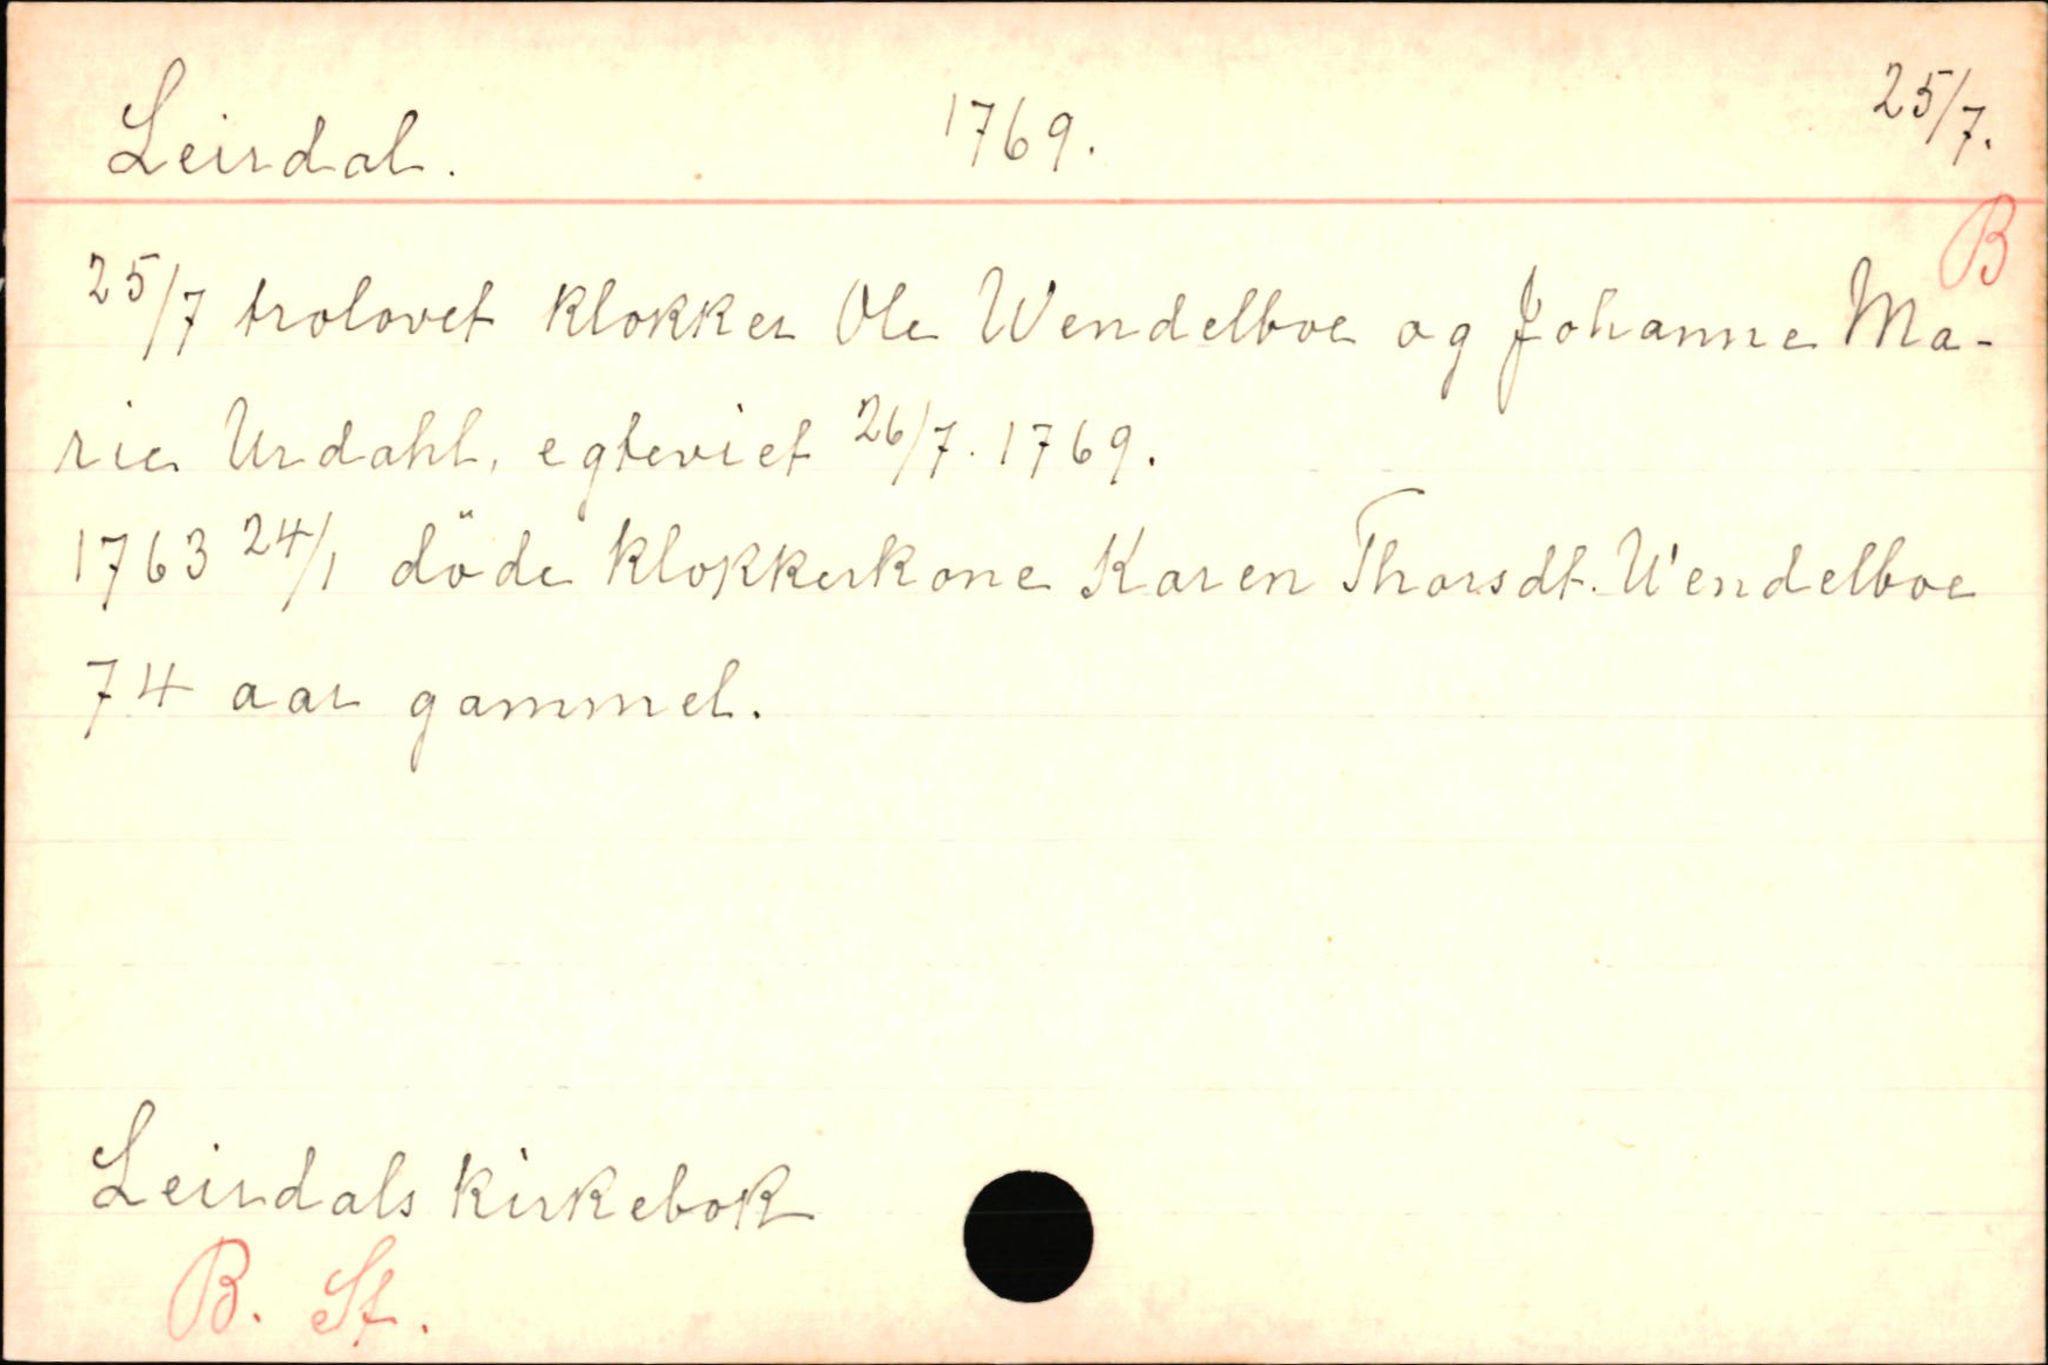 Leirdal. 1769. 25/7.
B
25/7 trolovet klokker Ole Wendelboe og Johanne Ma-
rie Urdahl, egteviet 26/7. 1769.
1763 24/1 döde klokkerkone Karen Thorsdt. Wendelboe
74 aar gammel.
Leirdals kirkebok
B. St.